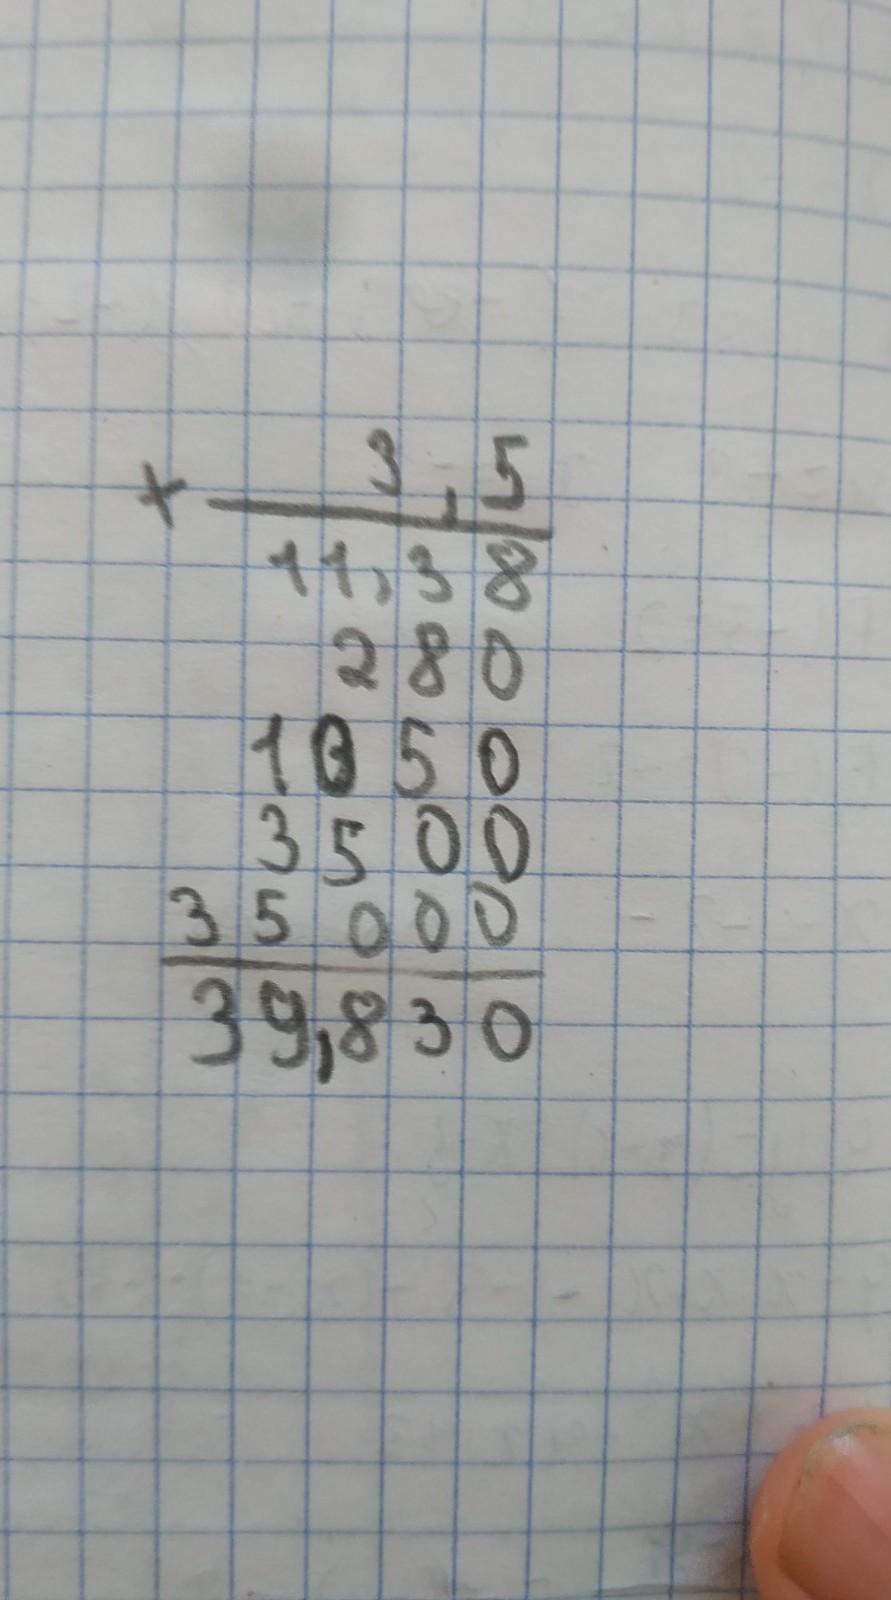 3,5
×
11,38
280
1050
3500
35000
39,830